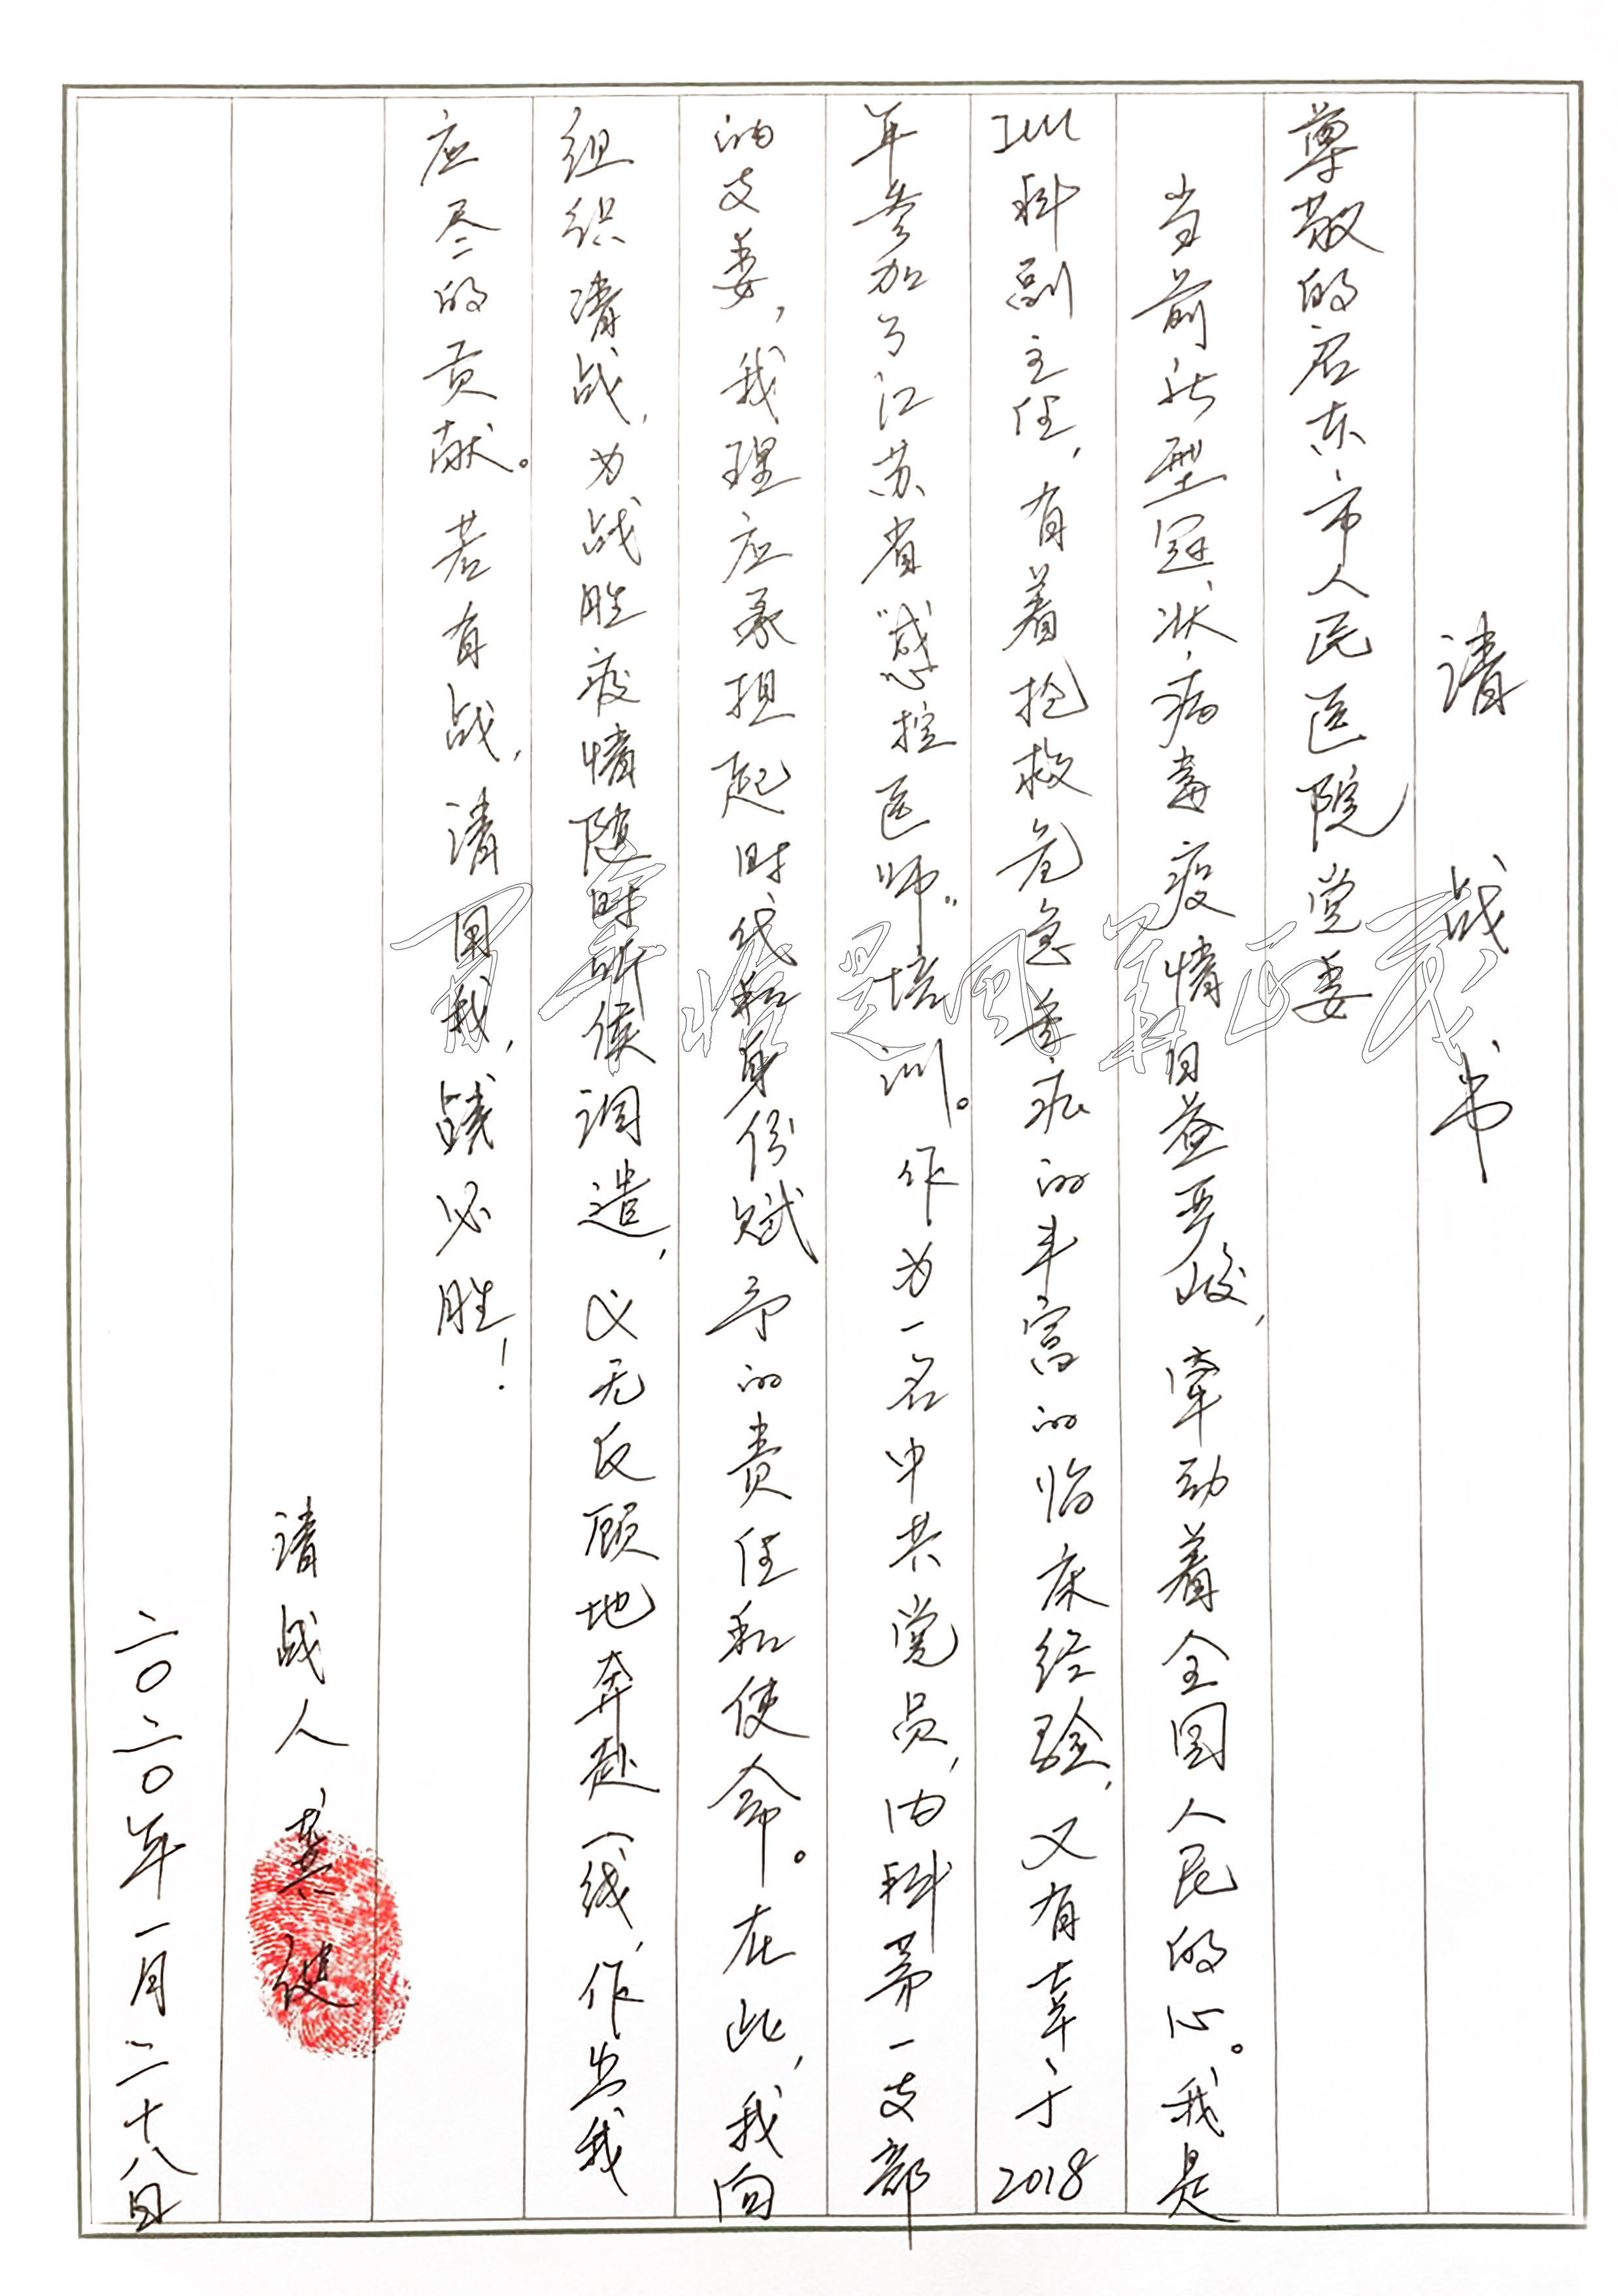 请战书
尊敬的启东市人民医院党委
当前新型冠状病毒疫情日益严峻，牵动着全国人民的心。我是
ICU科副主任，有着抢救危急重症的丰富的临床经验，又有幸于2018
年参加了江苏省“感控医师”培训。作为一名中共党员，内科第一支部
的支委，我理应承担起时代和身份赋予的责任和使命。在此，我向
组织请战，为战胜疫情随时听候调遣，义无反顾地奔赴一线，作出我
应尽的贡献。若有战，请用我，战必胜！
请战人 龚健
二〇二〇年一月二十八日